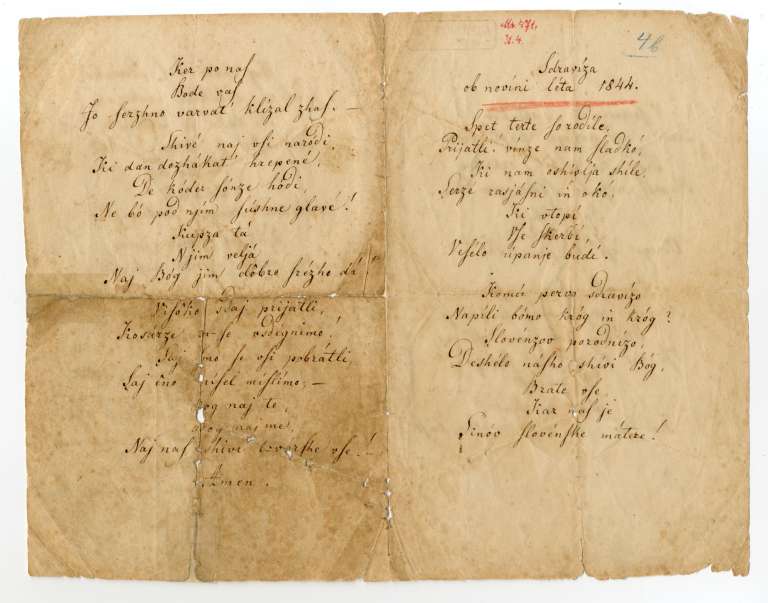 Ker po naſ
Bode vaſ
Jo ſerzhno varvat' klizal zhaſ. —
Shivé naj vſi narodi,
Ki dan dozhákat' hrepené,
De kóder ſónze hódi,
Ne bó pod njim ſushne glavé!
Kupza tá
Njim veljá
Naj Bóg jim dôbro ſrézho dá
Viſôko sdaj prijatli,
Kosarze vsdignimo!
mo ſe vſi pobrátli,
miſel miſlimo; —
Bóg naj te,
Bog naj me,
Naj naſ shivi vſe! —
Amen.
Mſ. 471,
N. 4.
46
Sdraviza
ob novini léta 1844.
Spet terte ſo rodile,
Prijatli! vinze nam ſladkó,
Ki nam oshivlja shile,
Serze rasjáſni in oko,
Ki vtopi
Vſe ſkerbi,
Veſélo úpanje budi.
Komú pervo sdravizo
Napili bómo króg in króg?
Slovénzov porodnizo,
Deshélo náſho shivi Bóg,
Brate vſe
Kar naſ je
Sinóv ſlovénſke mátere!